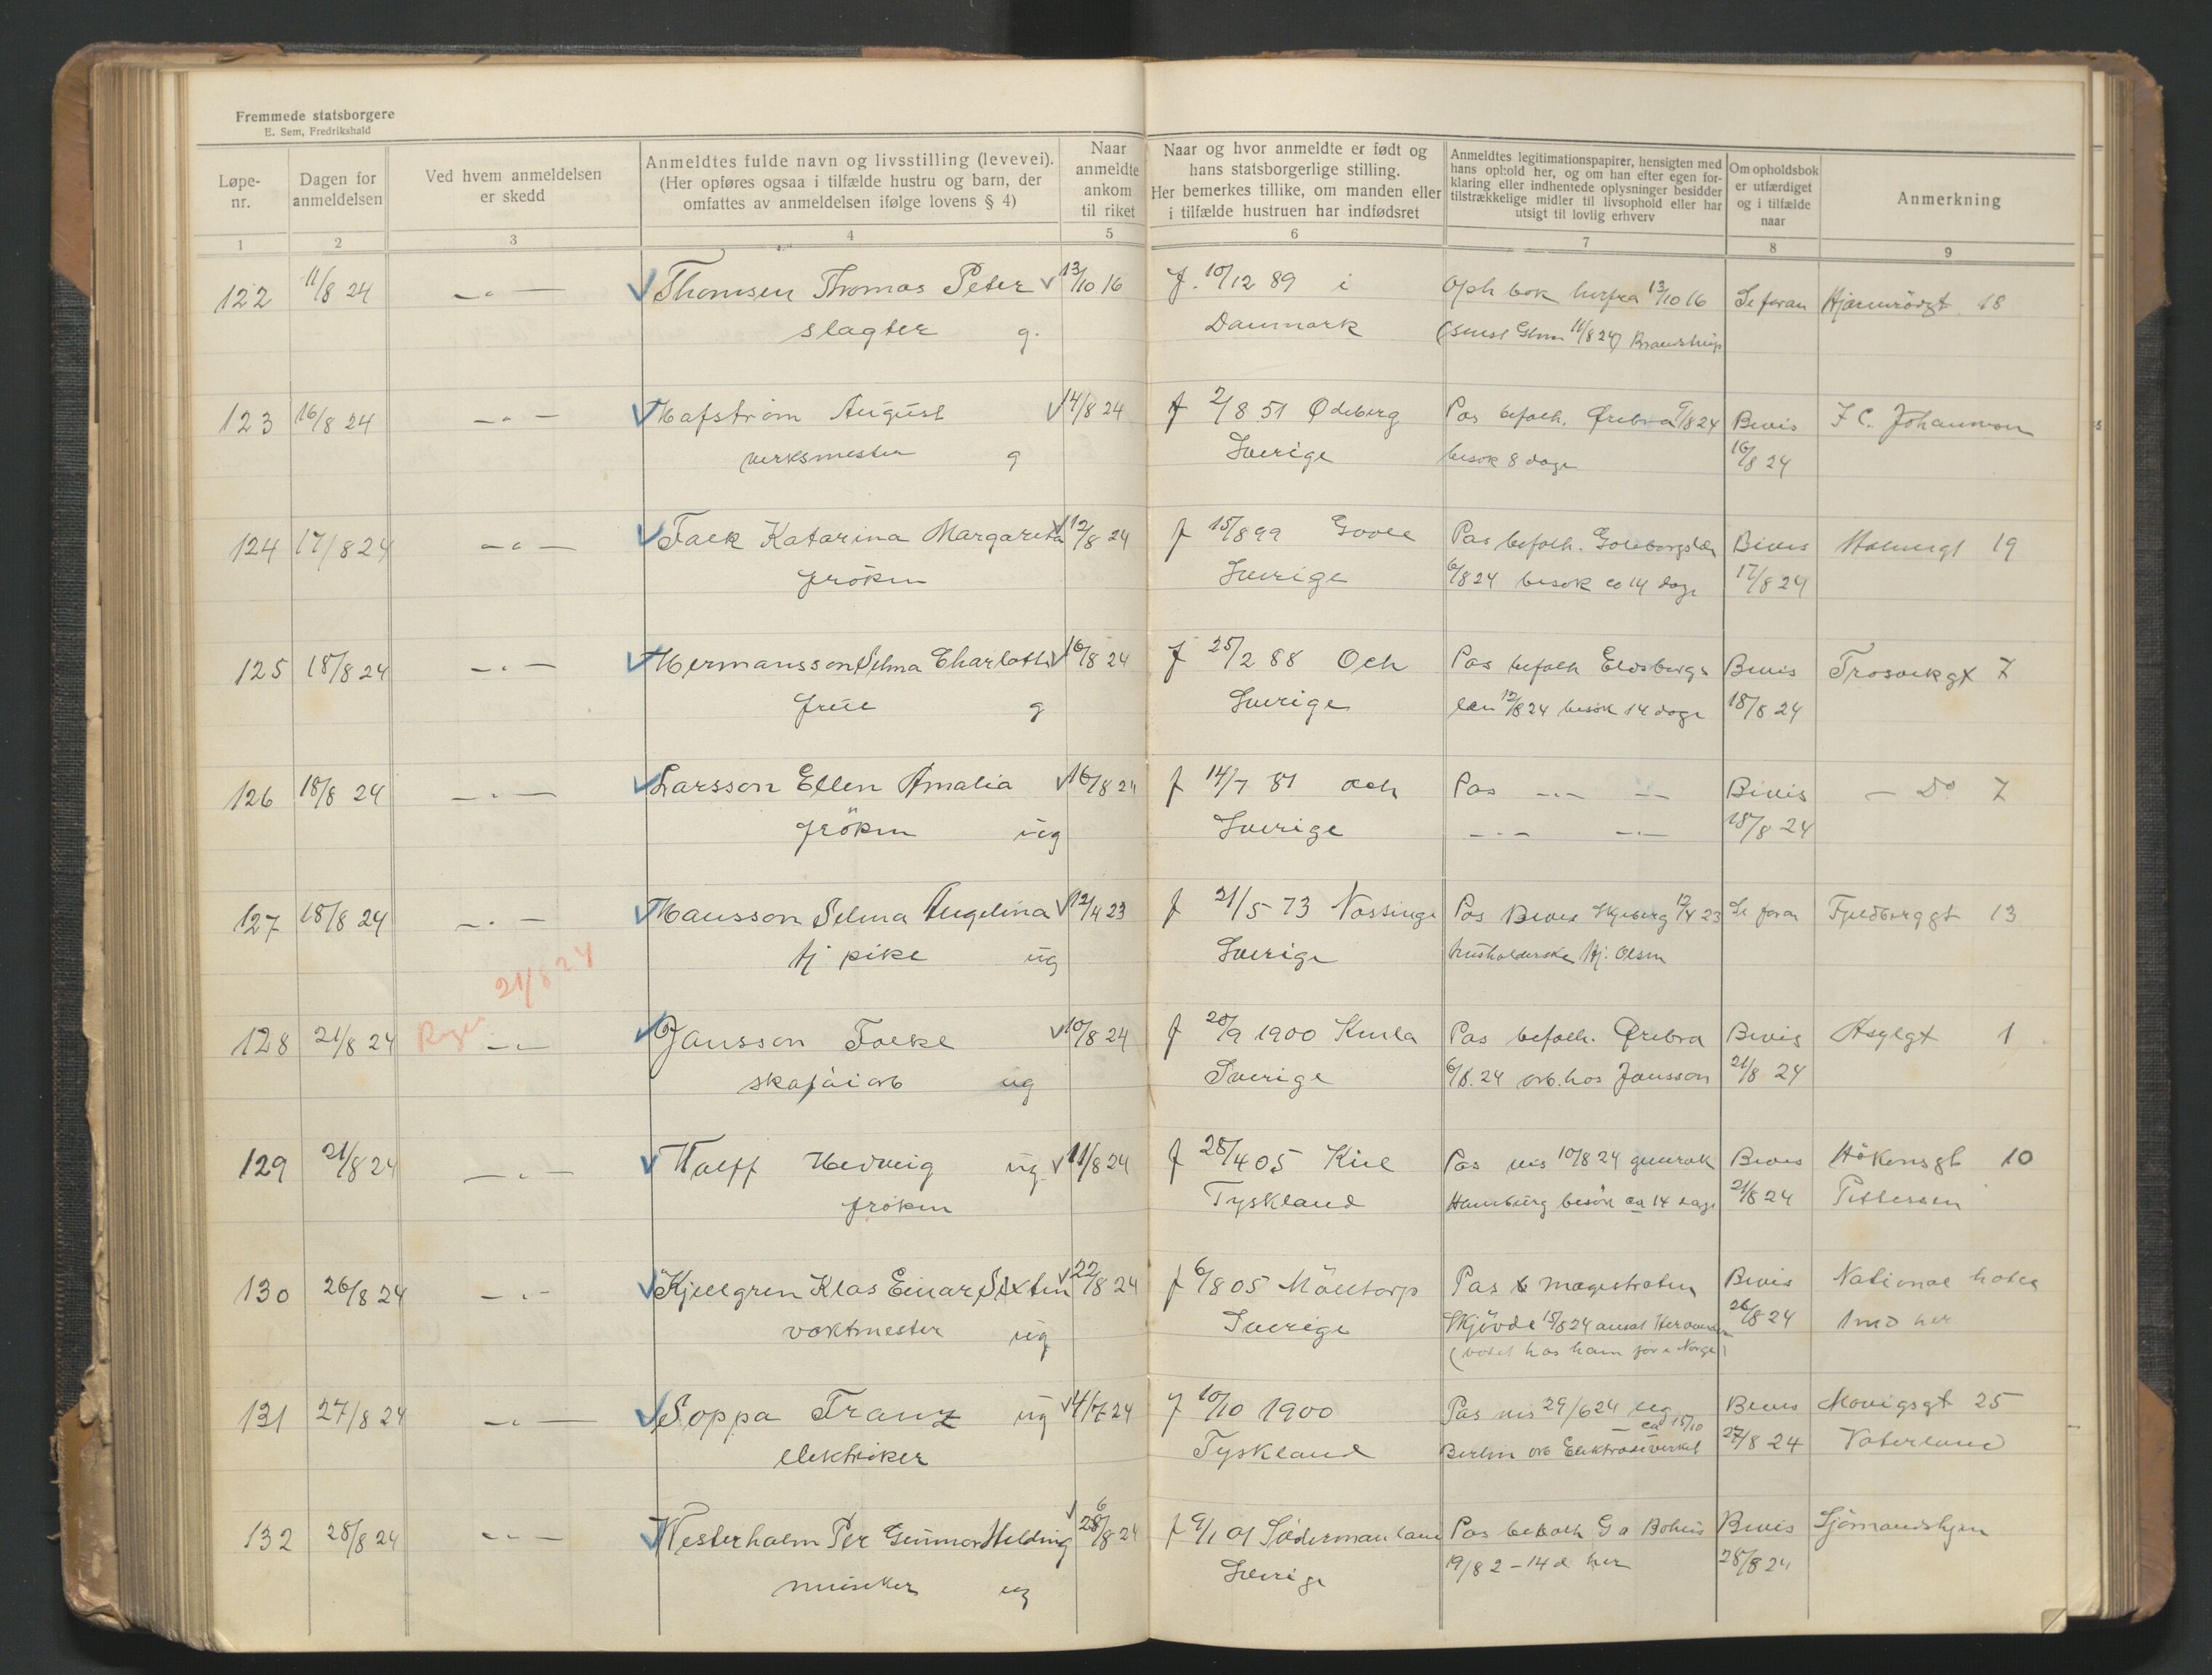 Fremmede statsborgere
E. Sem, Fredrikshald
Løpe-nr.
Dagen for anmeldelsen
Ved hvem anmeldelsen er skedd
Anmeldtes fulde navn og livsstilling (levevei).
(Her opføres ogsaa i tilfælde hustru og barn, der
omfattes av anmeldelsen ifølge lovens § 4)
Naar
anmeldte
ankom
til riket
Naar og hvor anmeldte er født og
hans statsborgerlige stilling.
Her bemerkes tillike, om manden eller
i tilfælde hustruen har indfødsret
Anmeldtes legitimationspapirer, hensigten med
hans ophold her, og om han efter egen for-
klaring eller indhentede oplysninger besidder
tilstrækkelige midler til livsophold eller har
utsigt til lovlig erhverv
Om opholdsbok
er utfærdiget
og i tilfælde
naar
Anmerkning
1 2 3 4 5 6 7 8 9
122 11/8 24 -"- Thomsen Thomas Peter 13/10 16 f. 10/12 89 i Oph bok herfra 13/10 16 Se foran 18
slagter g. Danmark 11/8 24
123 16/8 24 -"- Hafström August 14/8 24 f 2/8 51 Ødeberg Pas befalh. Örebro 9/8 24 Bevis J C. Johannson
verksmester g Sverige besøk 8 dage 16/8 24
124 17/8 24 -"- Falk Katarina Margareta 12/8 24 f 15/8 99 Pas befalh. 6/8 24 Bevis 19
frøken Sverige besøk ca 14 dage 17/8 24
125 18/8 24 -"- Hermansson Selma Charlotte 16/8 24 f 25/2 88 Och Pas befalh Bevis Trosvikgt 7
frue g Sverige len 12/8 24 besøk 14 dage 18/8 24
126 18/8 24 -"- Larsson Ellen Amalia 16/8 24 f 14/7 81 och Pas -"- -"- Bevis - Do 7
frøken ug Sverige -"- -"- 18/8 24
127 18/8 24 -"- Hansson Selma Angelina 12/4 23 f 21/5 73 Pas Bevis Skjeberg 12/4 23 Se foran Fjeldberggt 13
tj pike ug Sverige husholderske Hj. Olsen
21/8 24
128 21/8 24 -"- Jansson Folke 10/8 24 f 20/9 1900 Kumla Pas befalh. Örebro Bevis Asylgt 1
ug Sverige 6/8. 24 arb. hos Jansson 21/8 24
129 21/8 24 -"- Wolff Hedwig ug 11/8 24 f 28/4 05 Kiel Pas vis 10/8 24 Bevis Håkonsgt 10
frøken Tyskland Hamburg besøk ca 14 dage 21/8 24 Pettersen
130 26/8 24 -"- Kjellgren Klas Einar Sixten 22/8 24 f 6/8 05 Möltorp Pas magistraten Bevis National hotel
vaktmester ug Sverige Skjövde 15/8 24 26/8 24 1 md her
hos ham før i Norge)
131 27/8 24 -"- Soppa Franz ug 4/7 24 f 10/10 1900 Pas vis 29/6 24 ca 15/10 Bevis 25
elektriker Tyskland Berlin arb 27/8 24 Vaterland
132 28/8 24 -"- Westerholm Per Gunnar Helding 26/8 24 f 9/1 01 Södermanland Pas befalh G o Bohus Bevis Sjömandshjem
musiker ug Sverige 19/8 2 - 14 d her 28/8 24